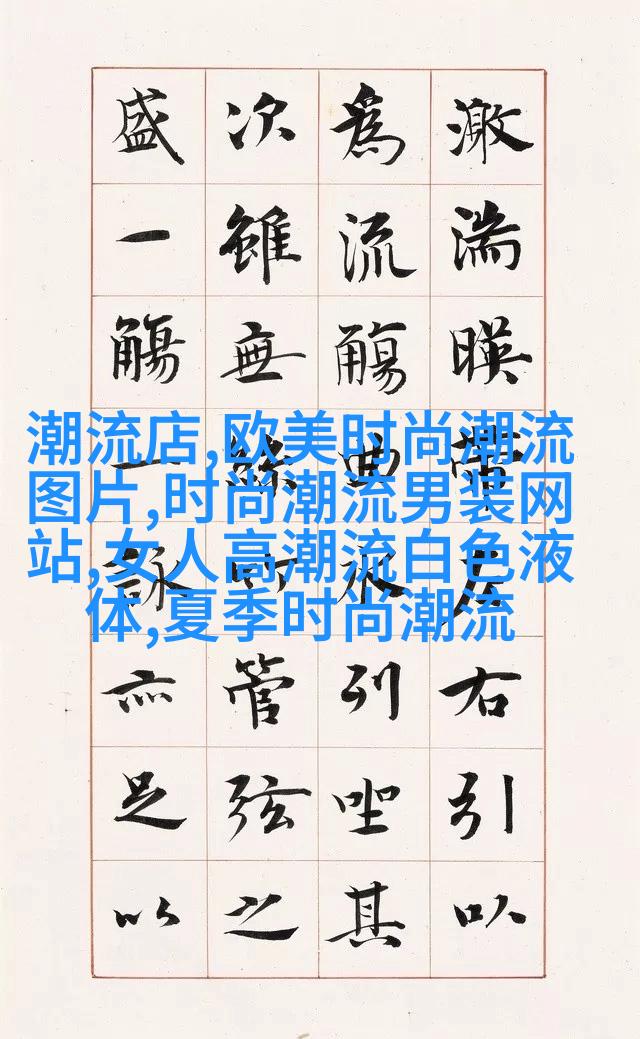 激湍暎帶左右引以
為流觴曲水列坐其
次雖無絲竹管弦之
盛一觴一詠亦足以
潮流店,欧美时尚潮流
图片,时尚潮流男装网
站,女人高潮流白色液
体,夏季时尚潮流